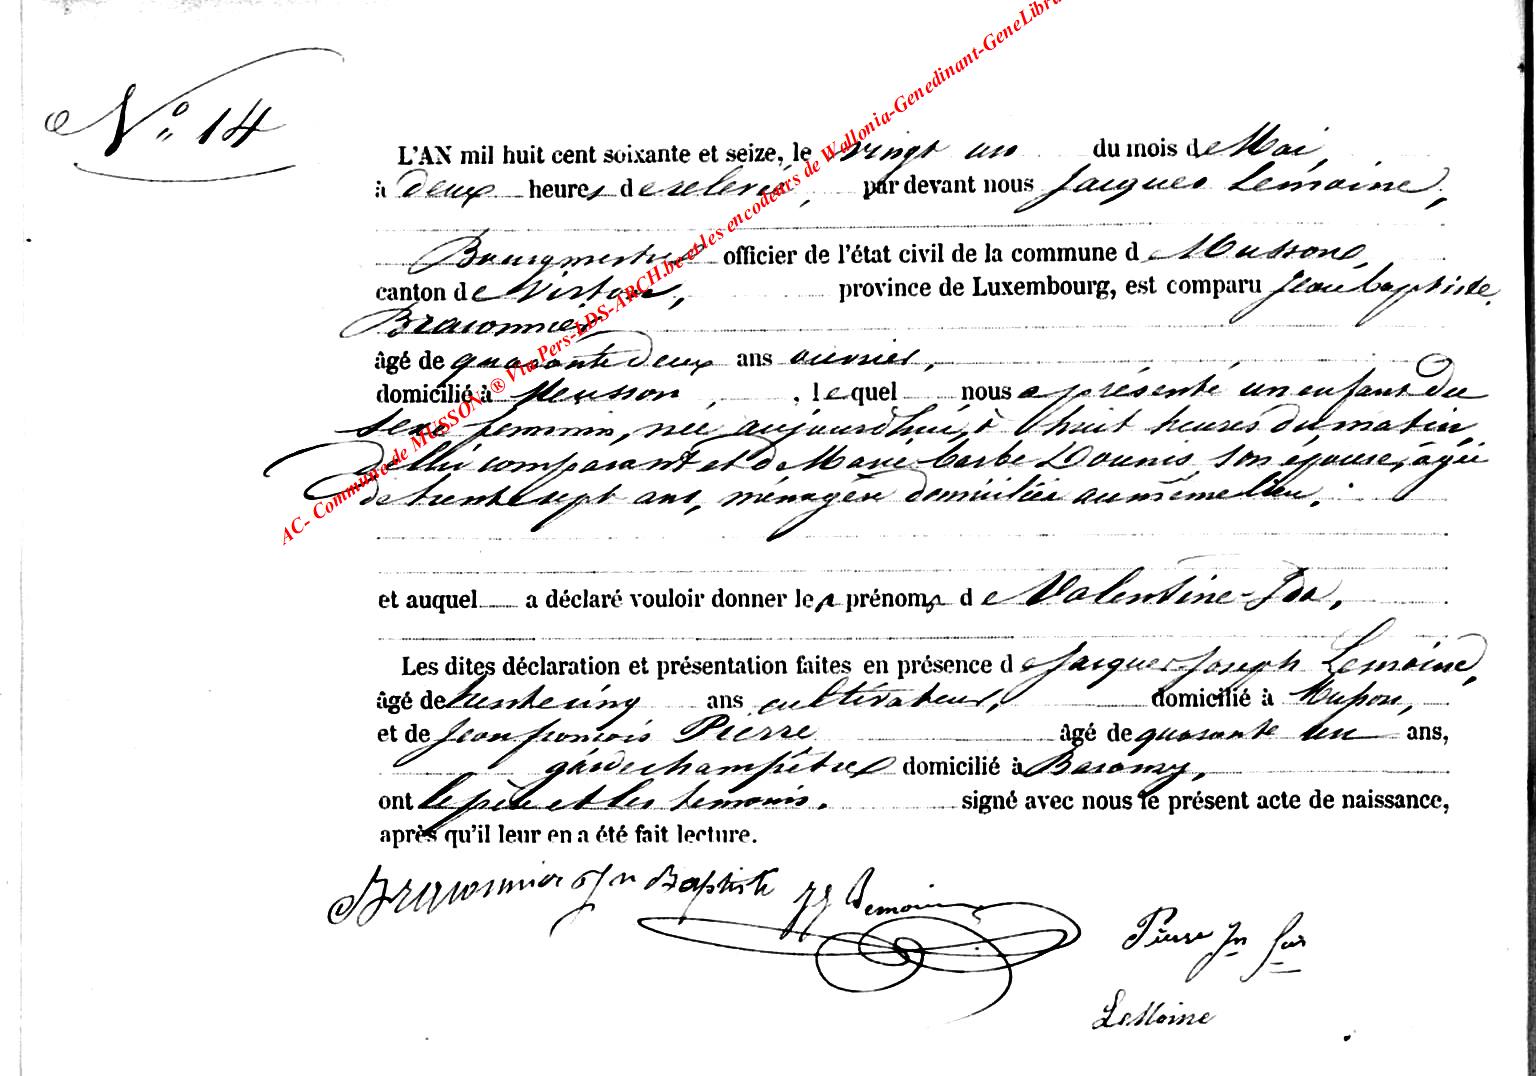 N° 14
L'AN mil huit cent soixante et seize, le vingt un du mois de Mai,
à deux heures de relevée, par devant nous Jacques Lemoine,
Bourgmestre officier de l'état civil de la commune de Musson,
canton de Virton, province de Luxembourg, est comparu Jean baptiste
Braconnier
âgé de quarante deux ans ouvrier,
domicilié à Musson, lequel nous a présenté un enfant du
sexe féminin, née aujourd'hui, à huit heures du matin,
de lui comparant et de Marie barbe Dounis son épouse, âgée
de trente sept ans, ménagère domiciliée au même lieu.
et auquel a déclaré vouloir donner les prénoms de Valentine-Ida,
Les dites déclaration et présentation faites en présence de Jacques Joseph Lemoine,
âgé de trente cinq ans cultivateur, domicilié à Musson,
et de Jean françois Pierre âgé de quarante un ans,
garde champêtre domicilié à Baranzy,
ont le père et les témoins. signé avec nous le présent acte de naissance,
après qu'il leur en a été fait lecture.
Braconnier Jn Baptiste JJ Lemoine
Pierre Jn fois
LeMoine
AC- Commune de MUSSON ® Via Pers-LDS-ARCH.be et les encodeurs de Wallonia-Genedinant-GeneLibra